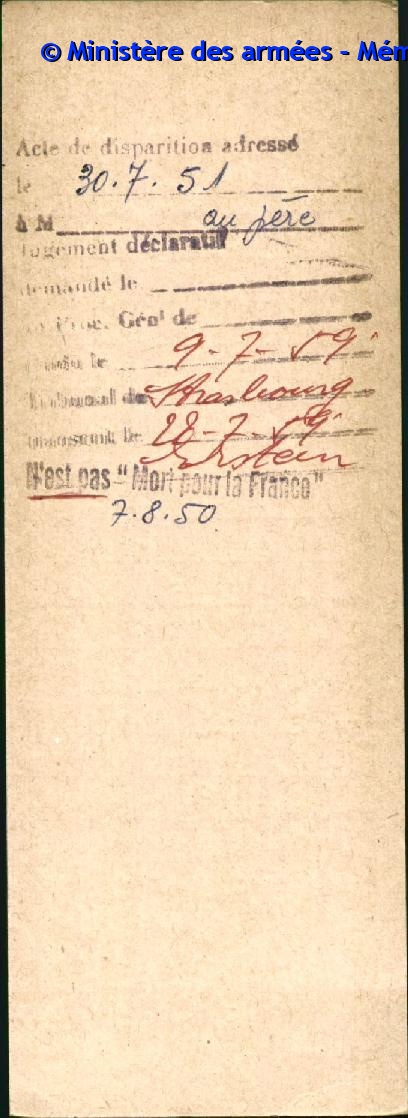 © Ministère des armées - Mém
Acte de disparition adressé
le 30.7.51
à M au père
Jugement déclaratif
demandé le
Proc. Génl de
9-7-59
Tribunal de Strasbourg
transcrit le 28-7-59
Erstein
N'est pas "Mort pour la France"
7.8.50